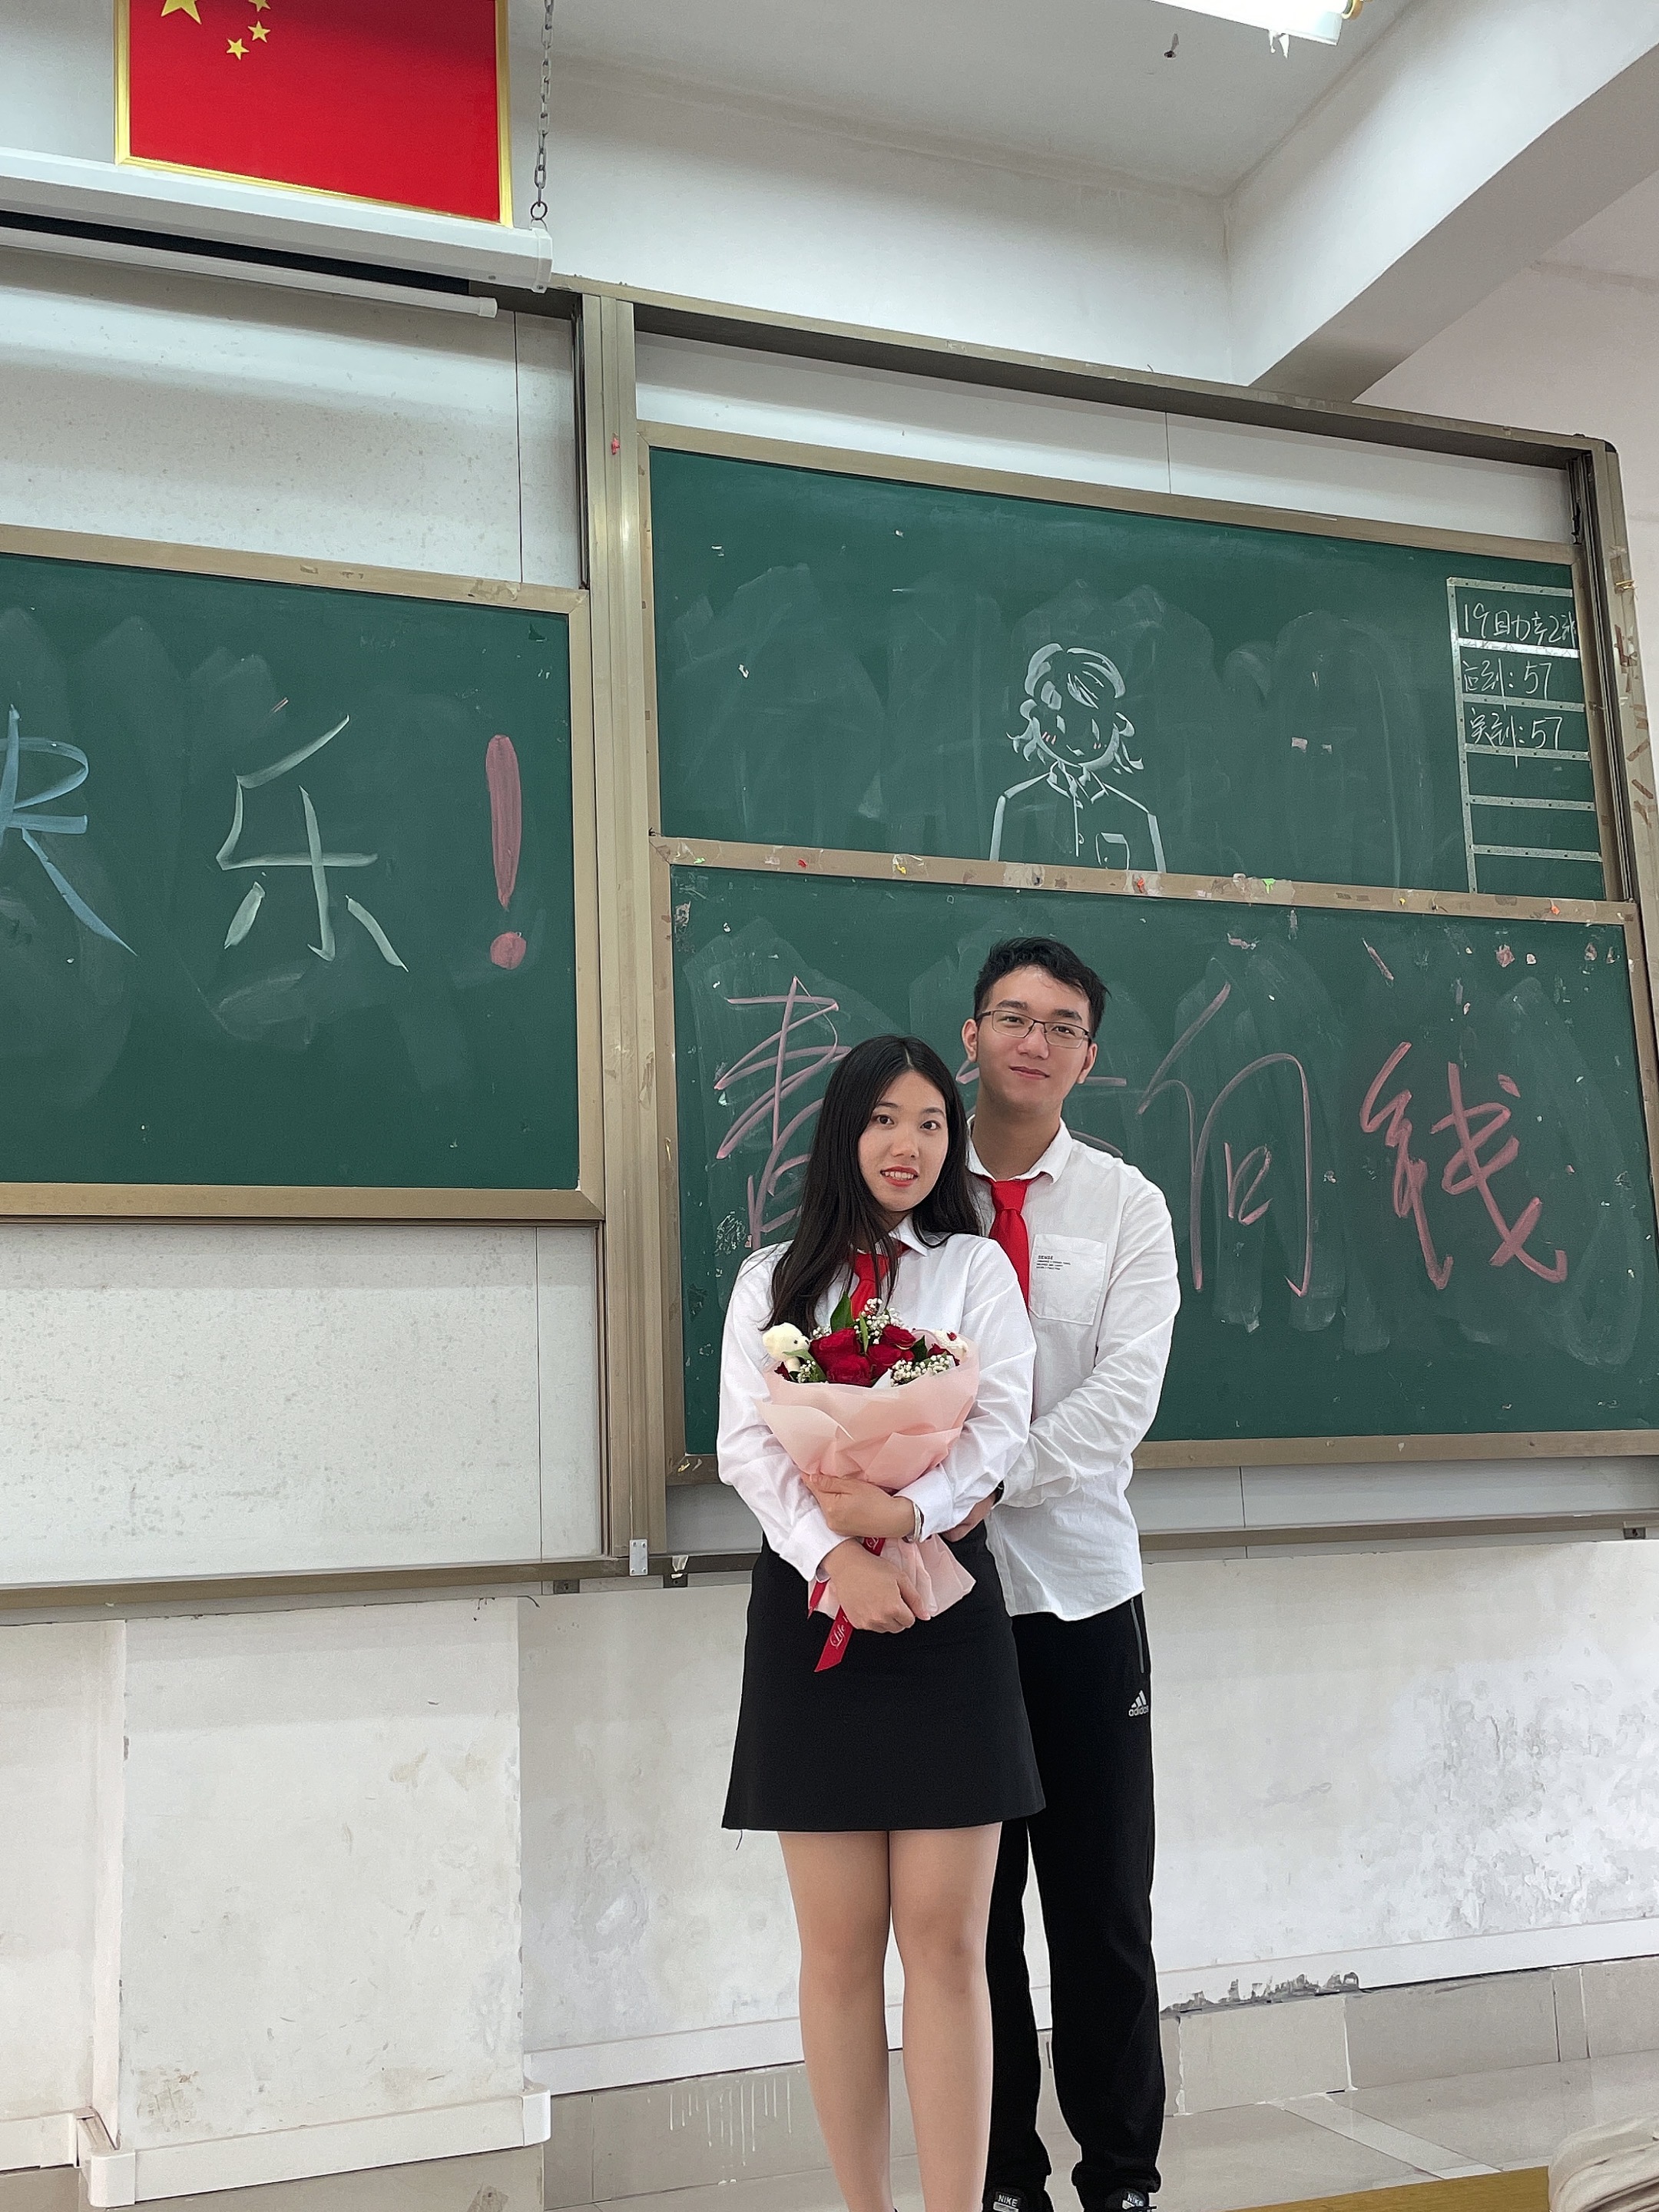 快乐！
19助产2班
应到:57
实到:57
青 向 钱
Life
adidas
NIKE
NIKE